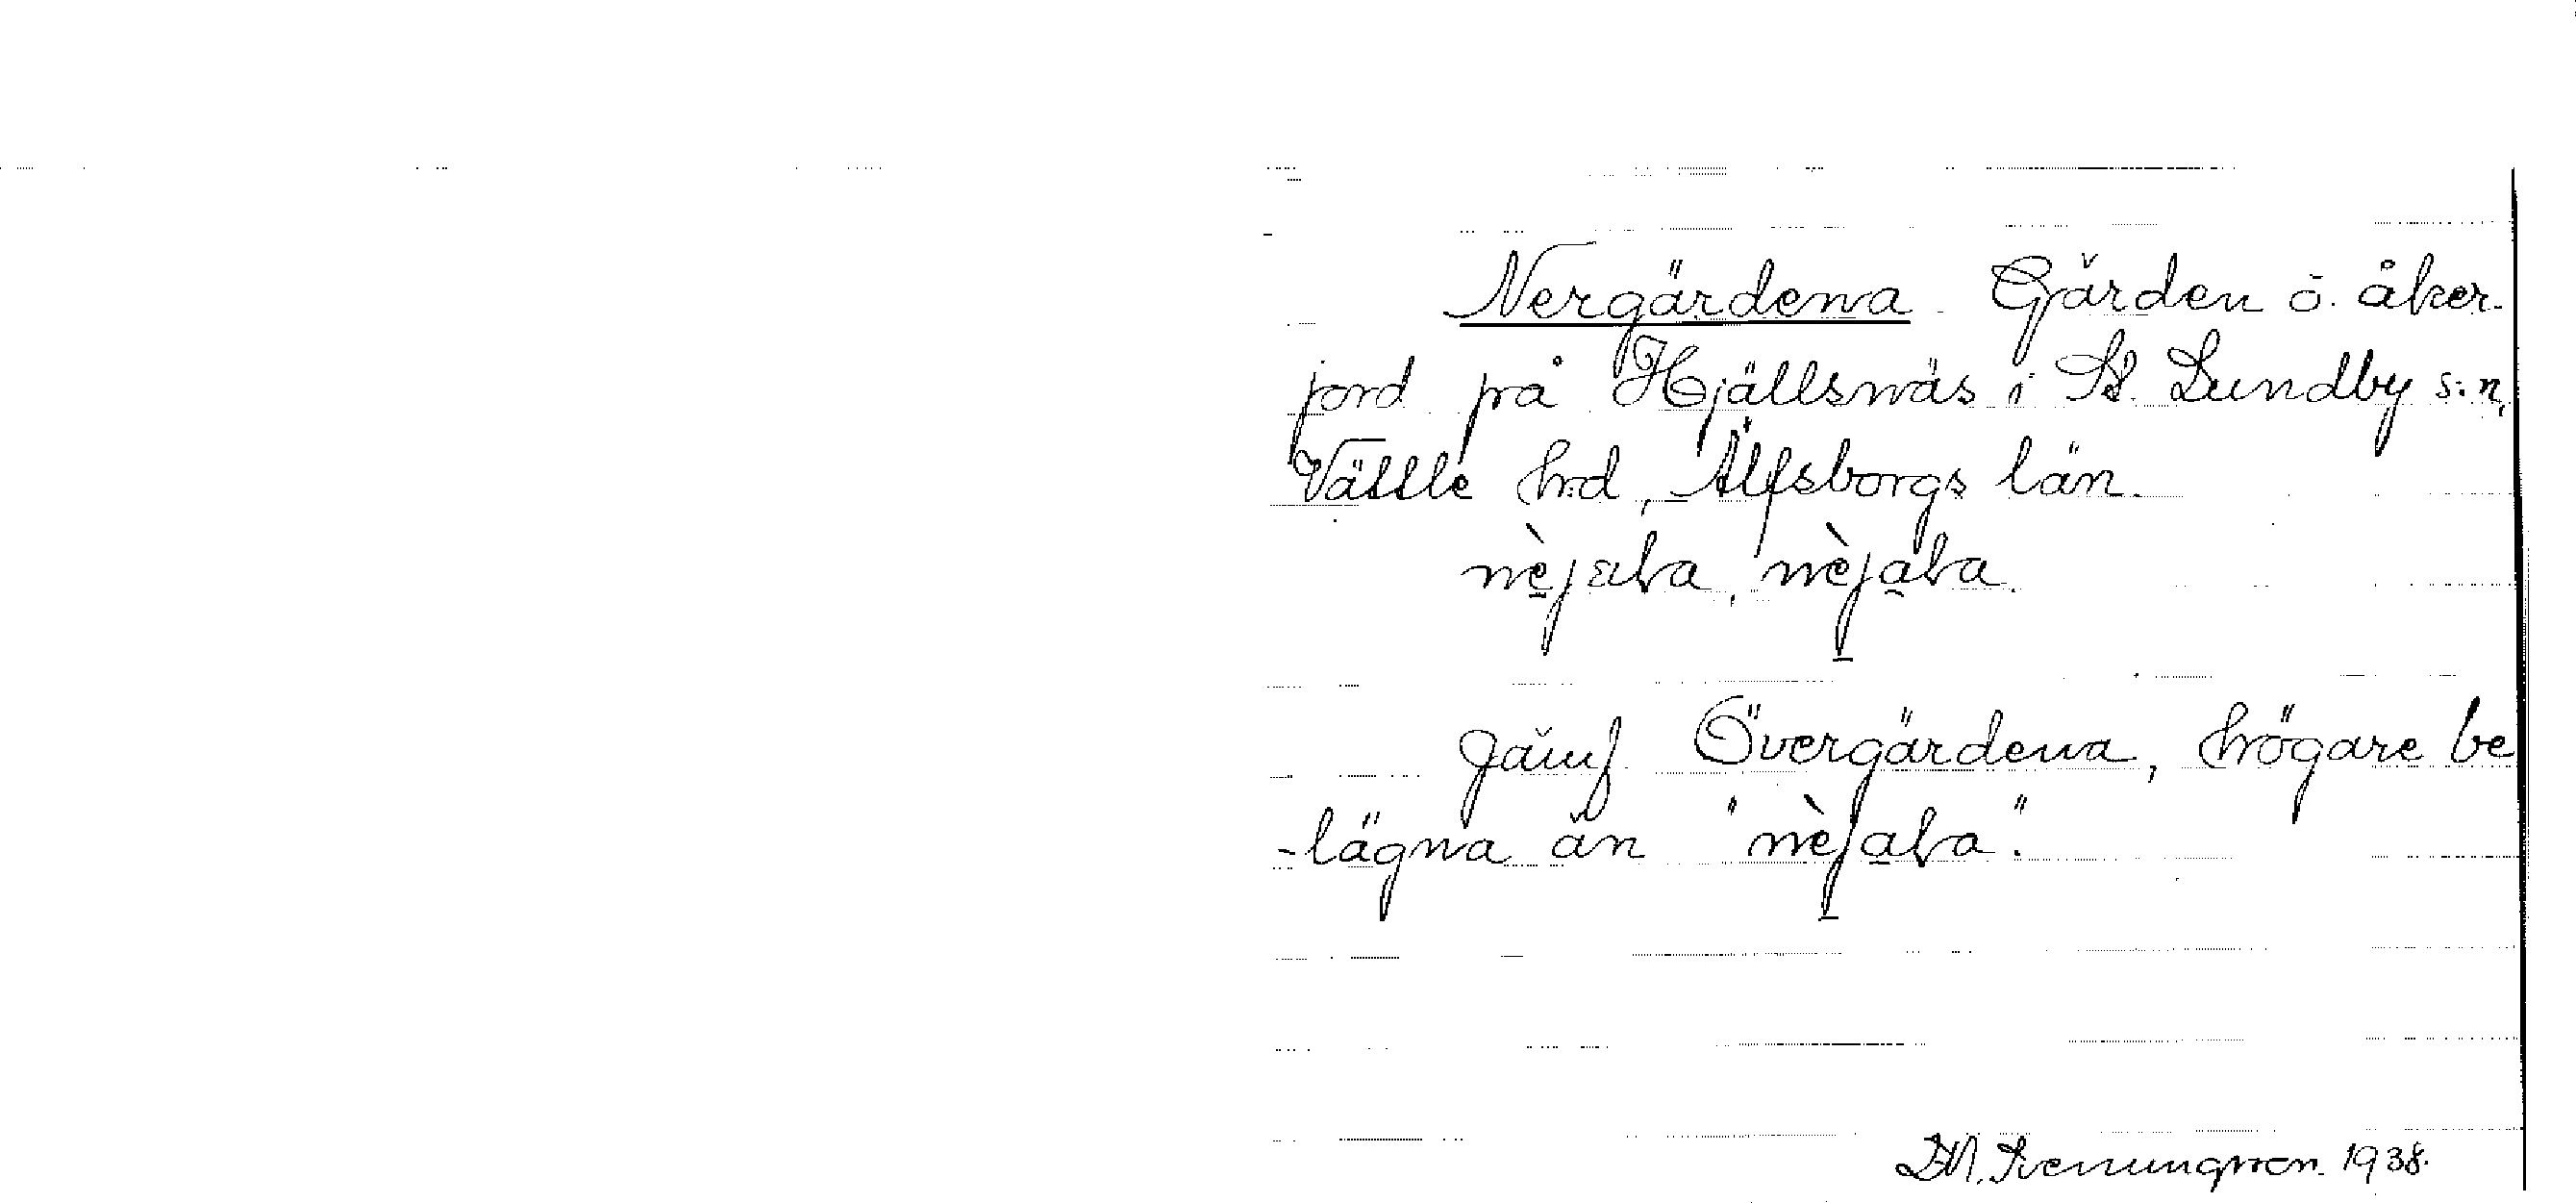 Nergärdena. Gärden o. åker-
jord på Hjällsnäs i St. Lundby s:n,
Vättle h:d, Älfsborgs län.
nèjaba, nèjaba.
Jämf. Övergärdena, högare be
-lägna än "nèjaba".
Svenungsson. 1938.